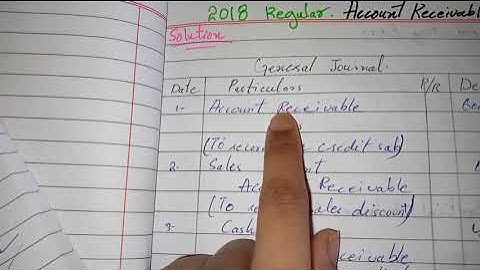 2018 Regular. Account Receivabl
Solution
General Journal.
Date Particulars P/R De
1- Account Receivable
(To credit sale)
2. Sales
Account Receivable
(To sales discount)
3- Cash
Receivable